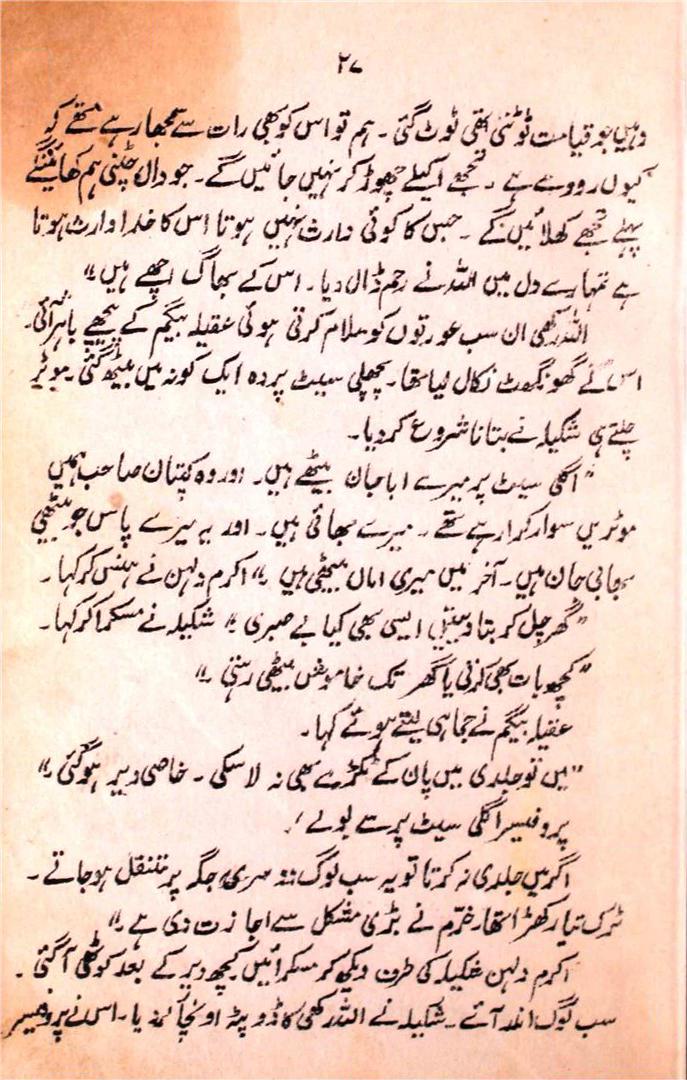 ۲۷
وہیں جو قیامت ٹوٹنی تھی ٹوٹ گئی ۔ ہم تو اس کو بھی رات سے سمجھا رہے تھے کہ
کیوں رووے ہے ۔ تجھے اکیلے چھوڑ کر نہیں جائیں گے ۔ جو دال چٹنی ہم کھائینگے
پہلے تجھے کھلائیں گے ۔ جس کا کوئی وارث نہیں ہوتا اس کا خدا وارث ہوتا
ہے تمہارے دل میں اللہ نے رحم ڈال دیا ۔ اس کے بھاگ اچھے ہیں ۔"
اللہ رکھی ان سب عورتوں کو سلام کرتی ہوئی عقیلہ بیگم کے پیچھے باہر آئی۔
اس نے گھونگھٹ نکال لیا تھا۔ پچھلی سیٹ پر وہ ایک کونہ میں بیٹھ گئی ۔ موٹر
چلتے ہی شکیلہ نے بتانا شروع کر دیا۔
"اگلی سیٹ پر میرے ابا جان بیٹھے ہیں۔ اور وہ کپتان صاحب ہمیں
موٹر میں سوار کرا رہے تھے ۔ میرے بھائی ہیں ۔ اور یہ میرے پاس جو بیٹھی
بھابی جان ہیں ۔ آخر میں میری اماں بیٹھی ہیں ۔" اکرم دلہن نے ہنس کر کہا ۔
"گھر چل کر بتا دیتیں ایسی بھی کیا بے صبری ۔" شکیلہ نے مسکرا کر کہا ۔
"کچھ بات بھی کرنی یا گھر تک خاموش بیٹھی رہتی ۔"
عقیلہ بیگم نے جماہی لیتے ہوئے کہا ۔
"میں تو جلدی میں پان کے ٹکڑے بھی نہ لا سکی ۔ خاصی دیر ہو گئی ۔"
پروفیسر اگلی سیٹ پر سے بولے ۔
اگر میں جلدی نہ کرتا تو یہ سب لوگ دوسری جگہ پر منتقل ہو جاتے ۔
ٹرک تیار کھڑا تھا۔ خرّم نے بڑی مشکل سے اجازت دی ہے ۔"
اکرم دلہن شکیلہ کی طرف دیکھ کر مسکرائیں کچھ دیر کے بعد کوٹھی آ گئی ۔
سب لوگ اندر آئے ۔ شکیلہ نے اللہ رکھی کا ڈوپٹہ اونچا کر دیا ۔ اس نے پروفیسر